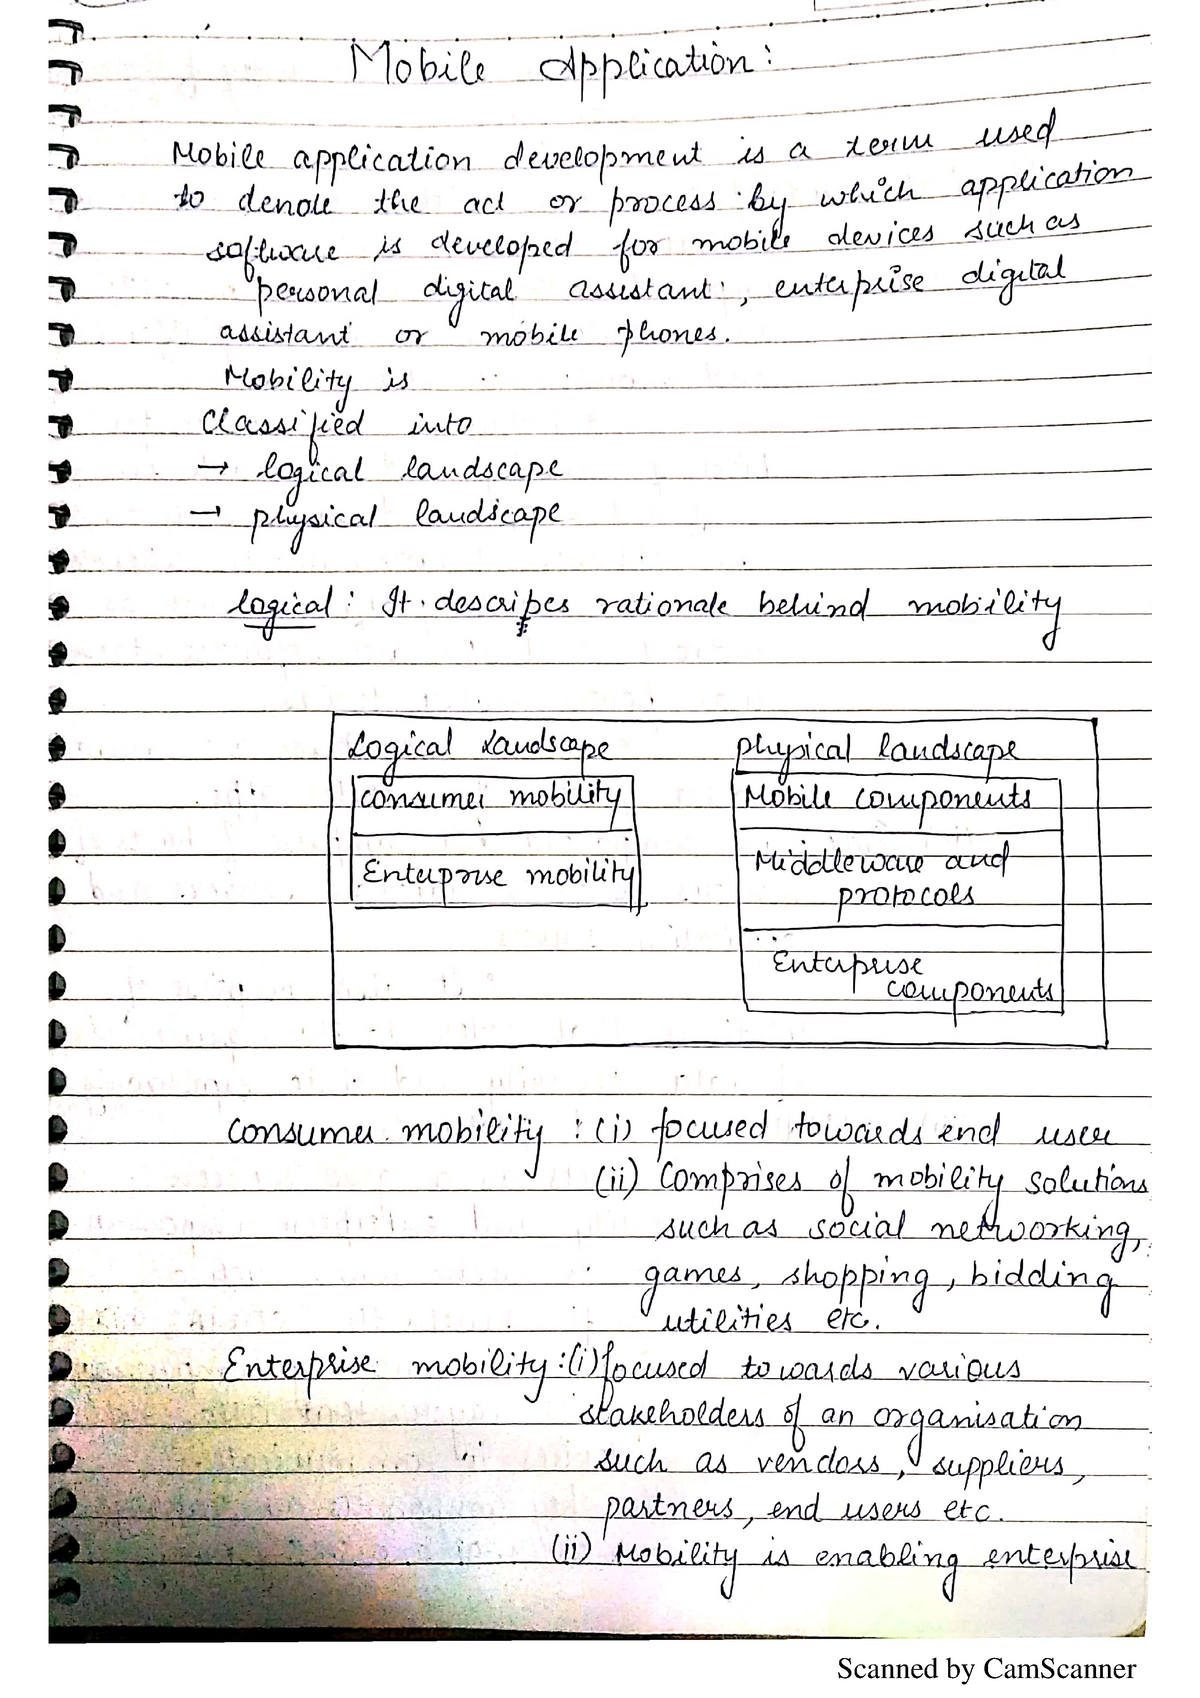 Mobile Application:
Mobile application development is a term used
to denote the act or process by which application
software is developed for mobile devices such as
personal digital assistant, enterprise digital
assistant or mobile phones.
Mobility is
Classified into
→ logical landscape
→ physical landscape
logical: It describes rationale behind mobility
Logical Landscape
Consumer mobility
Enterprise mobility
physical landscape
Mobile components
Middleware and
protocols
Enterprise
components
Consumer mobility : (i) focused towards end user
(ii) Comprises of mobility solutions
such as social networking,
games, shopping, bidding
utilities etc.
Enterprise mobility : (i) focused towards various
stakeholders of an organisation
such as vendoss, suppliers,
partners, end users etc.
(ii) Mobility is enabling enterprise
Scanned by CamScanner